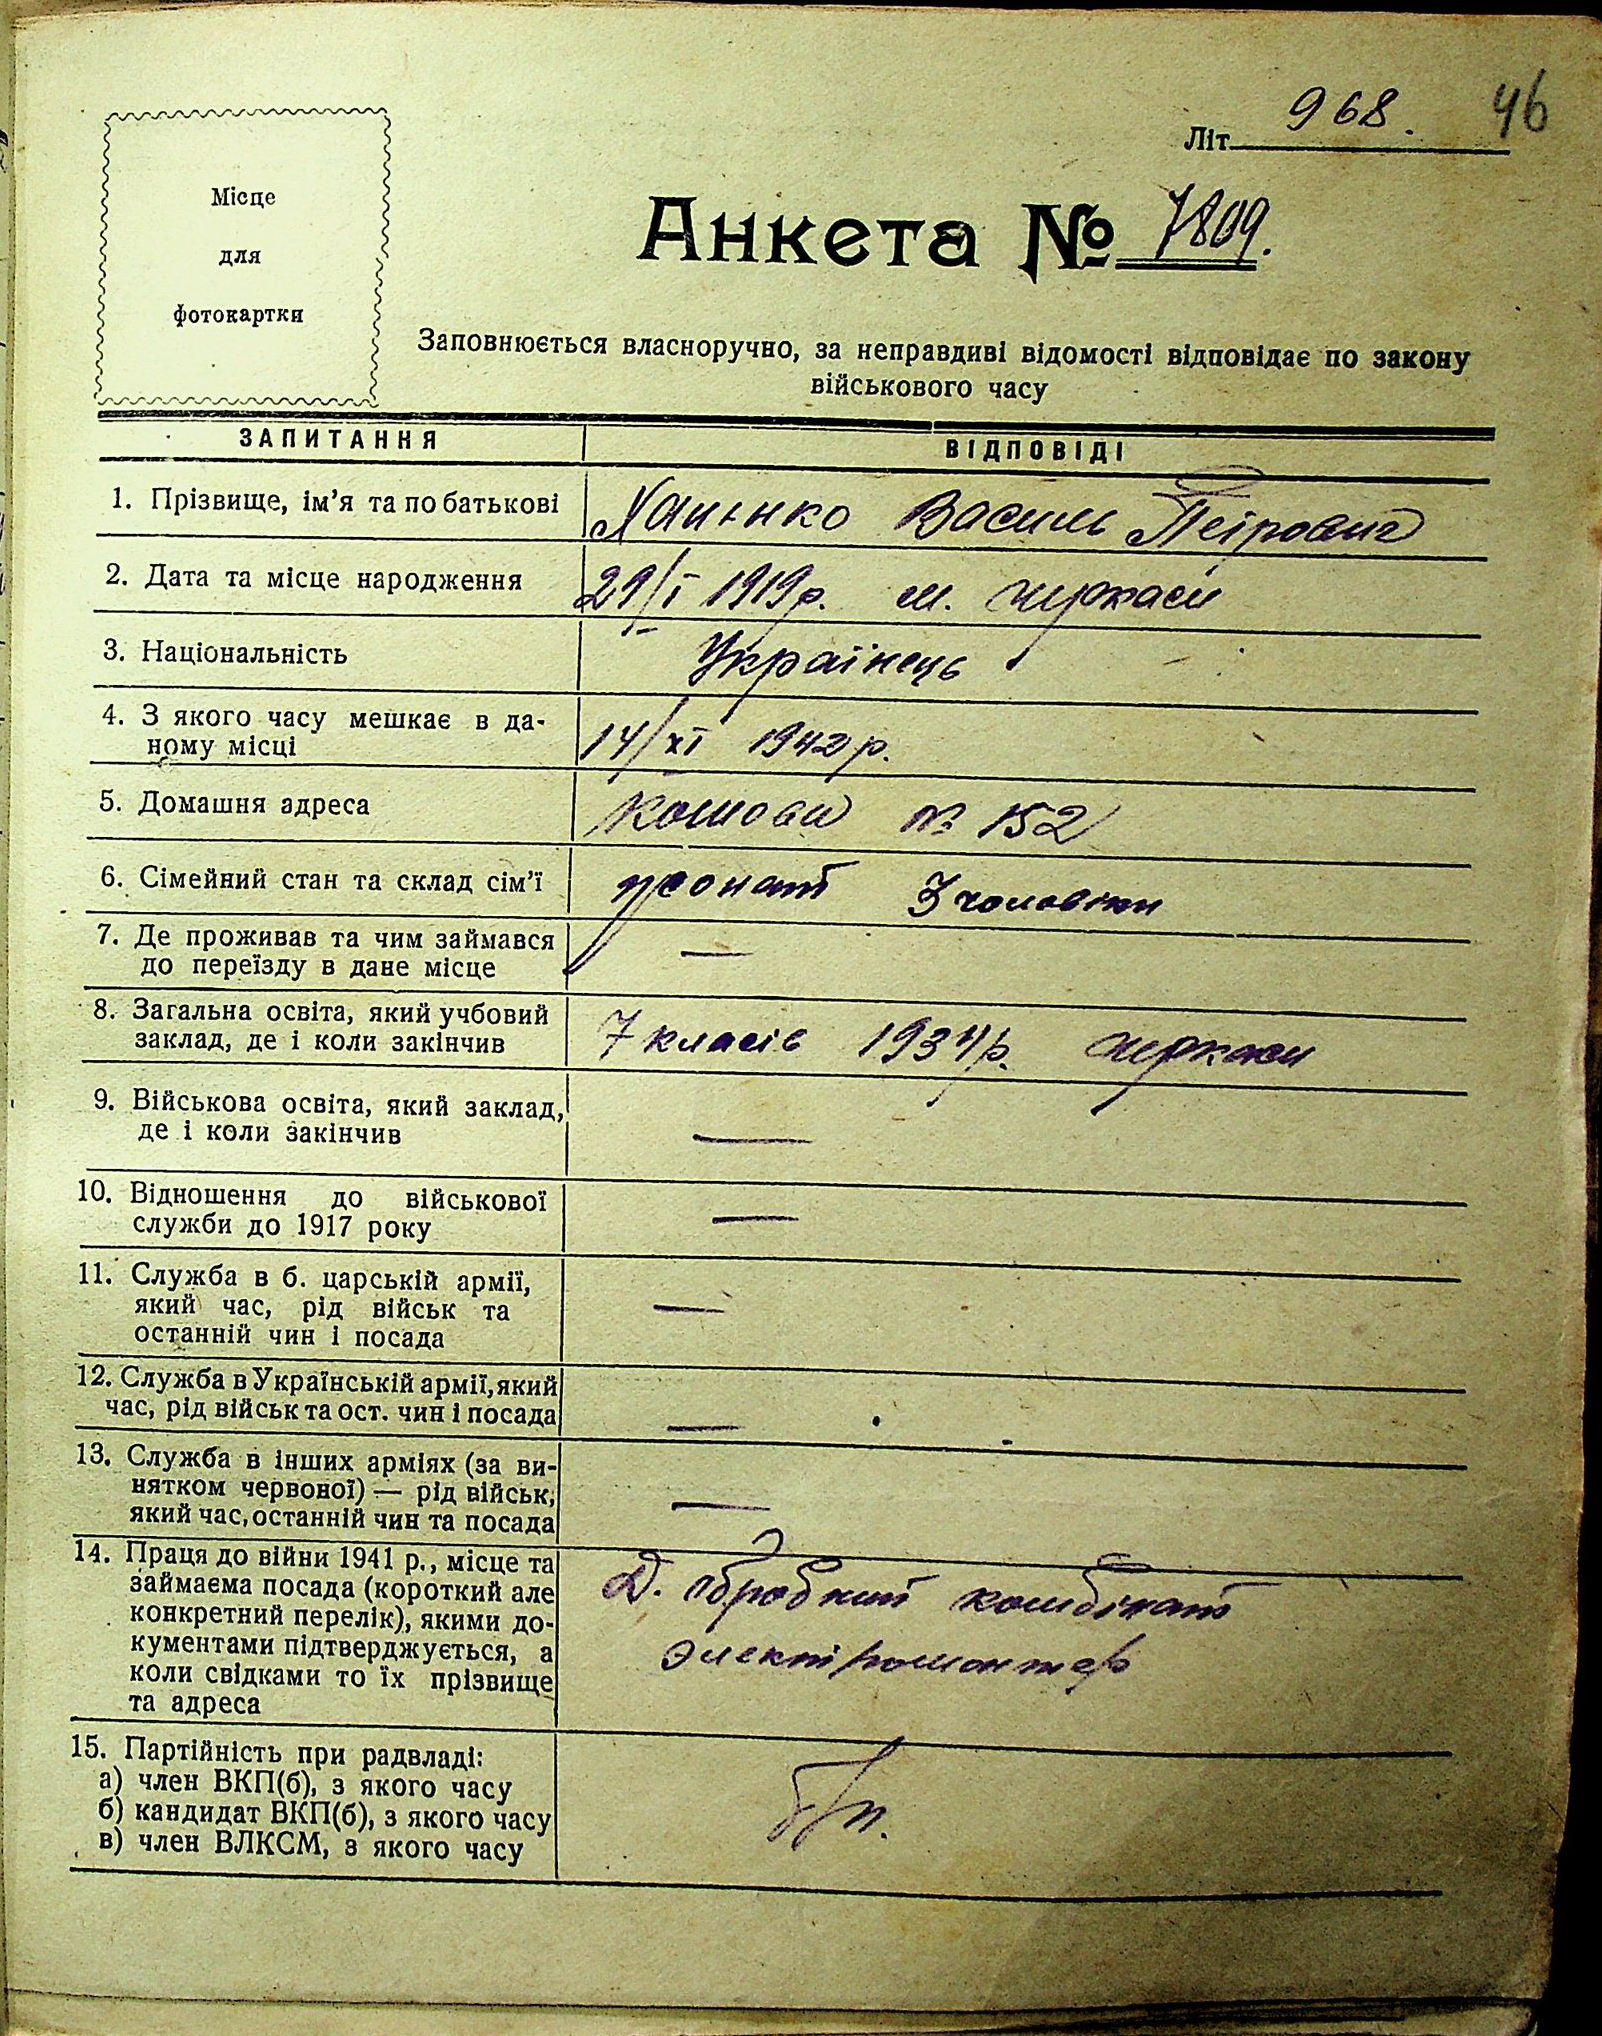 968. 46
Літ
Місце
для
фотокартки
Анкета № 7809.
Заповнюється власноручно, за неправдиві відомості відповідає по закону
військового часу
ЗАПИТАННЯ ВІДПОВІДІ
1. Прізвище, ім'я та по батькові Василь Петрович
2. Дата та місце народження 29/І 1919 р. м. Черкаси
3. Національність Українець
4. З якого часу мешкає в да-
ному місці 14/ХІ 1942 р.
5. Домашня адреса № 152
6. Сімейний стан та склад сім'ї 3 чоловіки
7. Де проживав та чим займався —
до переїзду в дане місце
8. Загальна освіта, який учбовий
заклад, де і коли закінчив 7 класів 1934 р. Черкаси
9. Військова освіта, який заклад,
де і коли закінчив —
10. Відношення до військової
служби до 1917 року —
11. Служба в б. царській армії,
який час, рід військ та —
останній чин і посада
12. Служба в Українській армії, який
час, рід військ та ост. чин і посада —
13. Служба в інших арміях (за ви-
нятком червоної) — рід військ, —
який час, останній чин та посада
14. Праця до війни 1941 р., місце та
займаєма посада (короткий але Д. обробний комбінат
конкретний перелік), якими до-
кументами підтверджується, а электромонтер
коли свідками то їх прізвище
та адреса
15. Партійність при радвладі:
а) член ВКП(б), з якого часу
б) кандидат ВКП(б), з якого часу б/п.
в) член ВЛКСМ, з якого часу